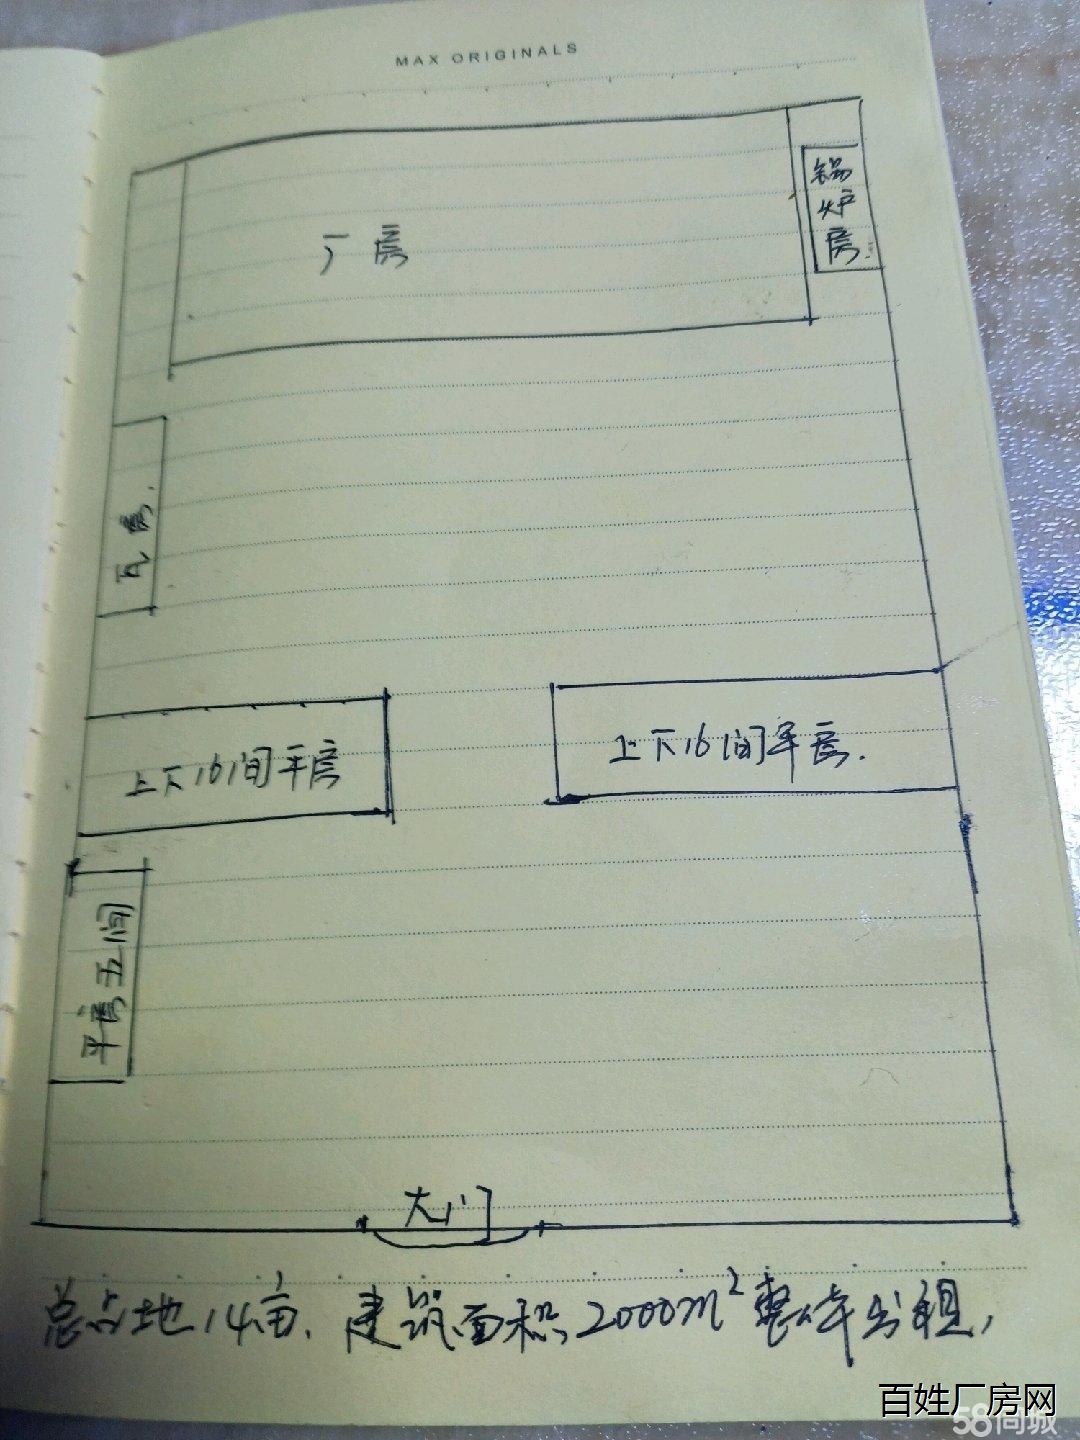 MAX ORIGINALS
厂房
锅炉房
瓦房
上下16间平房
上下16间平房
平房五间
大门
总占地14亩、建筑面积2000m²整体出租,
百姓厂房网
58同城